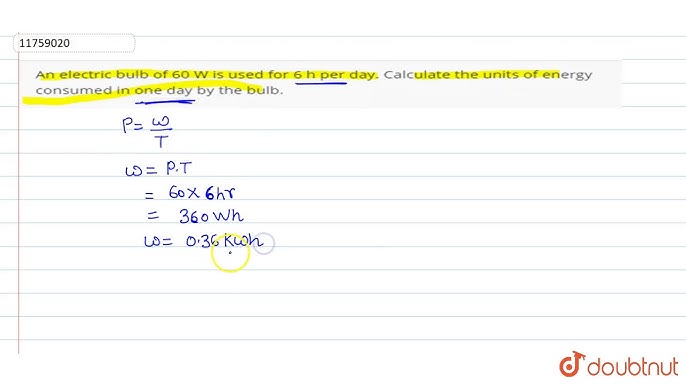 11759020
An electric bulb of 60 W is used for 6 h per day. Calculate the units of energy
consumed in one day by the bulb.
P = ω/T
ω = P.T
= 60 x 6hr
= 360 Wh
ω = 0.36 Kwh
doubtnut